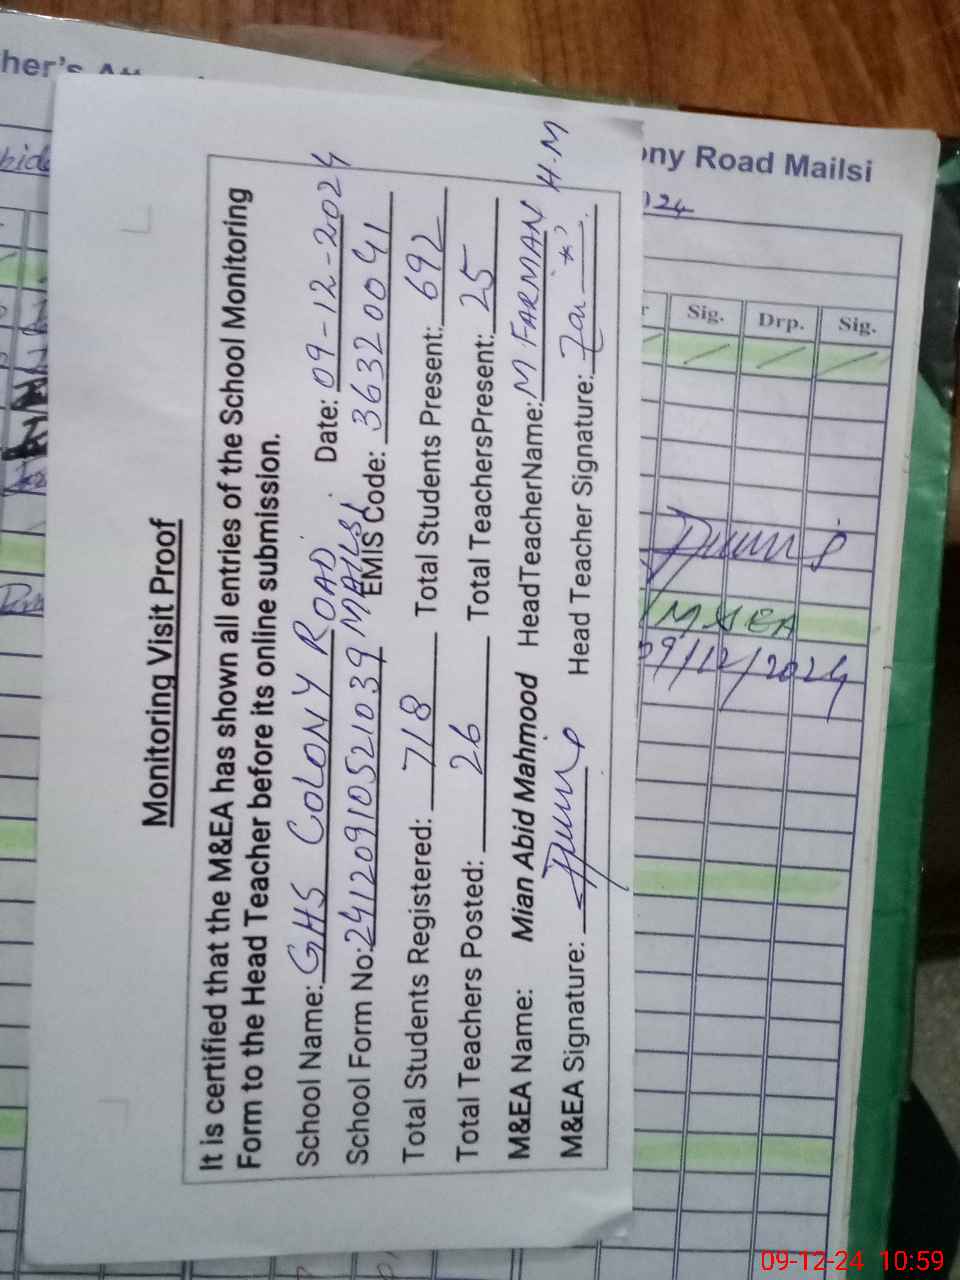 Monitoring Visit Proof
It is certified that the M&EA has shown all entries of the School Monitoring
Form to the Head Teacher before its online submission.
School Name: GHS COLONY ROAD MAILSI. Date: 09-12-2024
School Form No: 24120910521039 EMIS Code: 36320041
Total Students Registered: 718 Total Students Present: 692
Total Teachers Posted: 26 Total TeachersPresent: 25
M&EA Name: Mian Abid Mahmood HeadTeacherName: M FARMAN H.M
M&EA Signature: Head Teacher Signature:
her's
ony Road Mailsi
024
Sig. Drp. Sig.
M&EA
09/12/2024
09-12-24 10:59